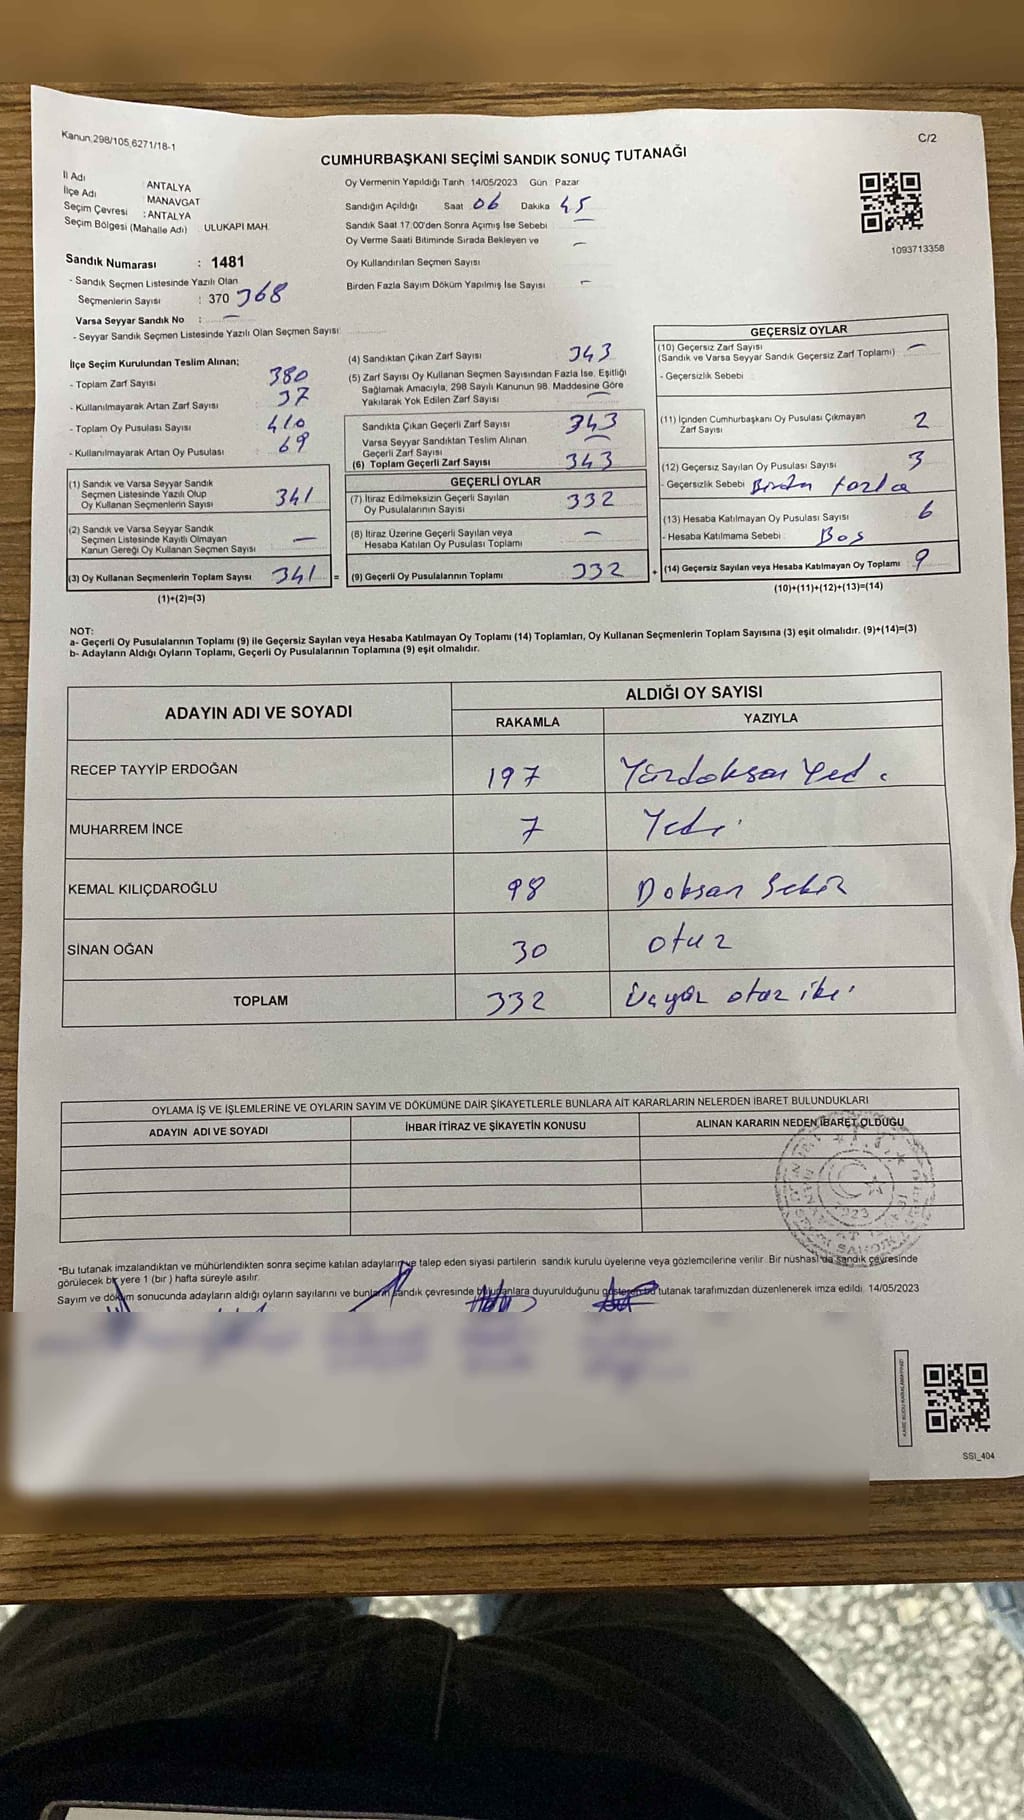 Kanun 298/105,6271/18-1
C/2
CUMHURBAŞKANI SEÇİMİ SANDIK SONUÇ TUTANAĞI
İl Adı : ANTALYA
İlçe Adı : MANAVGAT
Seçim Çevresi : ANTALYA
Seçim Bölgesi (Mahalle Adı) ULUKAPI MAH.
Oy Vermenin Yapıldığı Tarih 14/05/2023 Gün Pazar
Sandığın Açıldığı Saat 06 Dakika 45
Sandık Saat 17.00'den Sonra Açımış İse Sebebi
Oy Verme Saati Bitiminde Sırada Bekleyen ve —
Oy Kullandırılan Seçmen Sayısı
Birden Fazla Sayım Döküm Yapılmış İse Sayısı —
1093713358
Sandık Numarası : 1481
- Sandık Seçmen Listesinde Yazılı Olan
Seçmenlerin Sayısı : 370 368
Varsa Seyyar Sandık No : —
- Seyyar Sandık Seçmen Listesinde Yazılı Olan Seçmen Sayısı:
İlçe Seçim Kurulundan Teslim Alınan;
- Toplam Zarf Sayısı : 380
- Kullanılmayarak Artan Zarf Sayısı : 37
- Toplam Oy Pusulası Sayısı : 410
- Kullanılmayarak Artan Oy Pusulası : 69
(1) Sandık ve Varsa Seyyar Sandık
Seçmen Listesinde Yazılı Olup
Oy Kullanan Seçmenlerin Sayısı 341
(2) Sandık ve Varsa Seyyar Sandık
Seçmen Listesinde Kayıtlı Olmayan
Kanun Gereği Oy Kullanan Seçmen Sayısı —
(3) Oy Kullanan Seçmenlerin Toplam Sayısı 341 =
(1)+(2)=(3)
(4) Sandıktan Çıkan Zarf Sayısı 343
(5) Zarf Sayısı Oy Kullanan Seçmen Sayısından Fazla İse, Eşitliği
Sağlamak Amacıyla, 298 Sayılı Kanunun 98. Maddesine Göre
Yakılarak Yok Edilen Zarf Sayısı —
Sandıkta Çıkan Geçerli Zarf Sayısı 343
Varsa Seyyar Sandıktan Teslim Alınan
Geçerli Zarf Sayısı —
(6) Toplam Geçerli Zarf Sayısı 343
GEÇERLİ OYLAR
(7) İtiraz Edilmeksizin Geçerli Sayılan
Oy Pusulalarının Sayısı 332
(8) İtiraz Üzerine Geçerli Sayılan veya
Hesaba Katılan Oy Pusulası Toplamı —
(9) Geçerli Oy Pusulalarının Toplamı 332 +
GEÇERSİZ OYLAR
(10) Geçersiz Zarf Sayısı —
(Sandık ve Varsa Seyyar Sandık Geçersiz Zarf Toplamı)
- Geçersizlik Sebebi
(11) İçinden Cumhurbaşkanı Oy Pusulası Çıkmayan
Zarf Sayısı 2
(12) Geçersiz Sayılan Oy Pusulası Sayısı 3
- Geçersizlik Sebebi Birden fazla
(13) Hesaba Katılmayan Oy Pusulası Sayısı 6
- Hesaba Katılmama Sebebi : Boş
(14) Geçersiz Sayılan veya Hesaba Katılmayan Oy Toplamı 9
(10)+(11)+(12)+(13)=(14)
NOT:
a- Geçerli Oy Pusulalarının Toplamı (9) ile Geçersiz Sayılan veya Hesaba Katılmayan Oy Toplamı (14) Toplamları, Oy Kullanan Seçmenlerin Toplam Sayısına (3) eşit olmalıdır. (9)+(14)=(3)
b- Adayların Aldığı Oyların Toplamı, Geçerli Oy Pusulalarının Toplamına (9) eşit olmalıdır.
ADAYIN ADI VE SOYADI
ALDIĞI OY SAYISI
RAKAMLA YAZIYLA
RECEP TAYYİP ERDOĞAN 197 Yüzdoksan Yedi
MUHARREM İNCE 7 Yedi
KEMAL KILIÇDAROĞLU 98 Doksan Sekiz
SİNAN OĞAN 30 otuz
TOPLAM 332 Üçyüz otuz iki
OYLAMA İŞ VE İŞLEMLERİNE VE OYLARIN SAYIM VE DÖKÜMÜNE DAİR ŞİKAYETLERLE BUNLARA AİT KARARLARIN NELERDEN İBARET BULUNDUKLARI
ADAYIN ADI VE SOYADI İHBAR İTİRAZ VE ŞİKAYETİN KONUSU ALINAN KARARIN NEDEN İBARET OLDUĞU
1923
*Bu tutanak imzalandıktan ve mühürlendikten sonra seçime katılan adayların ve talep eden siyasi partilerin sandık kurulu üyelerine veya gözlemcilerine verilir. Bir nüshası da sandık çevresinde
görülecek bir yere 1 (bir ) hafta süreyle asılır.
Sayım ve döküm sonucunda adayların aldığı oyların sayılarını ve bunların sandık çevresinde bulunanlara duyurulduğunu gösteren bu tutanak tarafımızdan düzenlenerek imza edildi. 14/05/2023
SSI_404